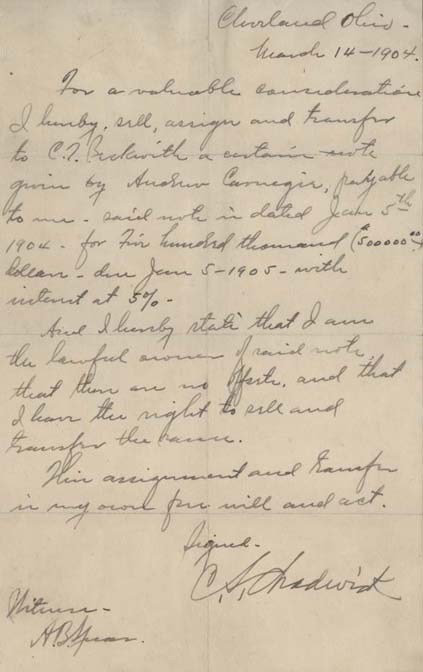 Cleveland Ohio -
March 14 - 1904.
For a valuable consideration
I hereby, sell, assign and transfer
to C.T. Beckwith a certain note
given by Andrew Carnegie, payable
to me - said note is dated Jan 5th
1904 - for Five hundred thousand ($500000.00)
Dollars - due Jan 5 - 1905 - with
interest at 5% -
And I hereby state that I am
the lawful owner of said note,
that there are no offsets, and that
I have the right to sell and
transfer the same.
This assignment and transfer
is my own free will and act.
Signed -
C. L. Chadwick
Witness -
A.B. Spear.